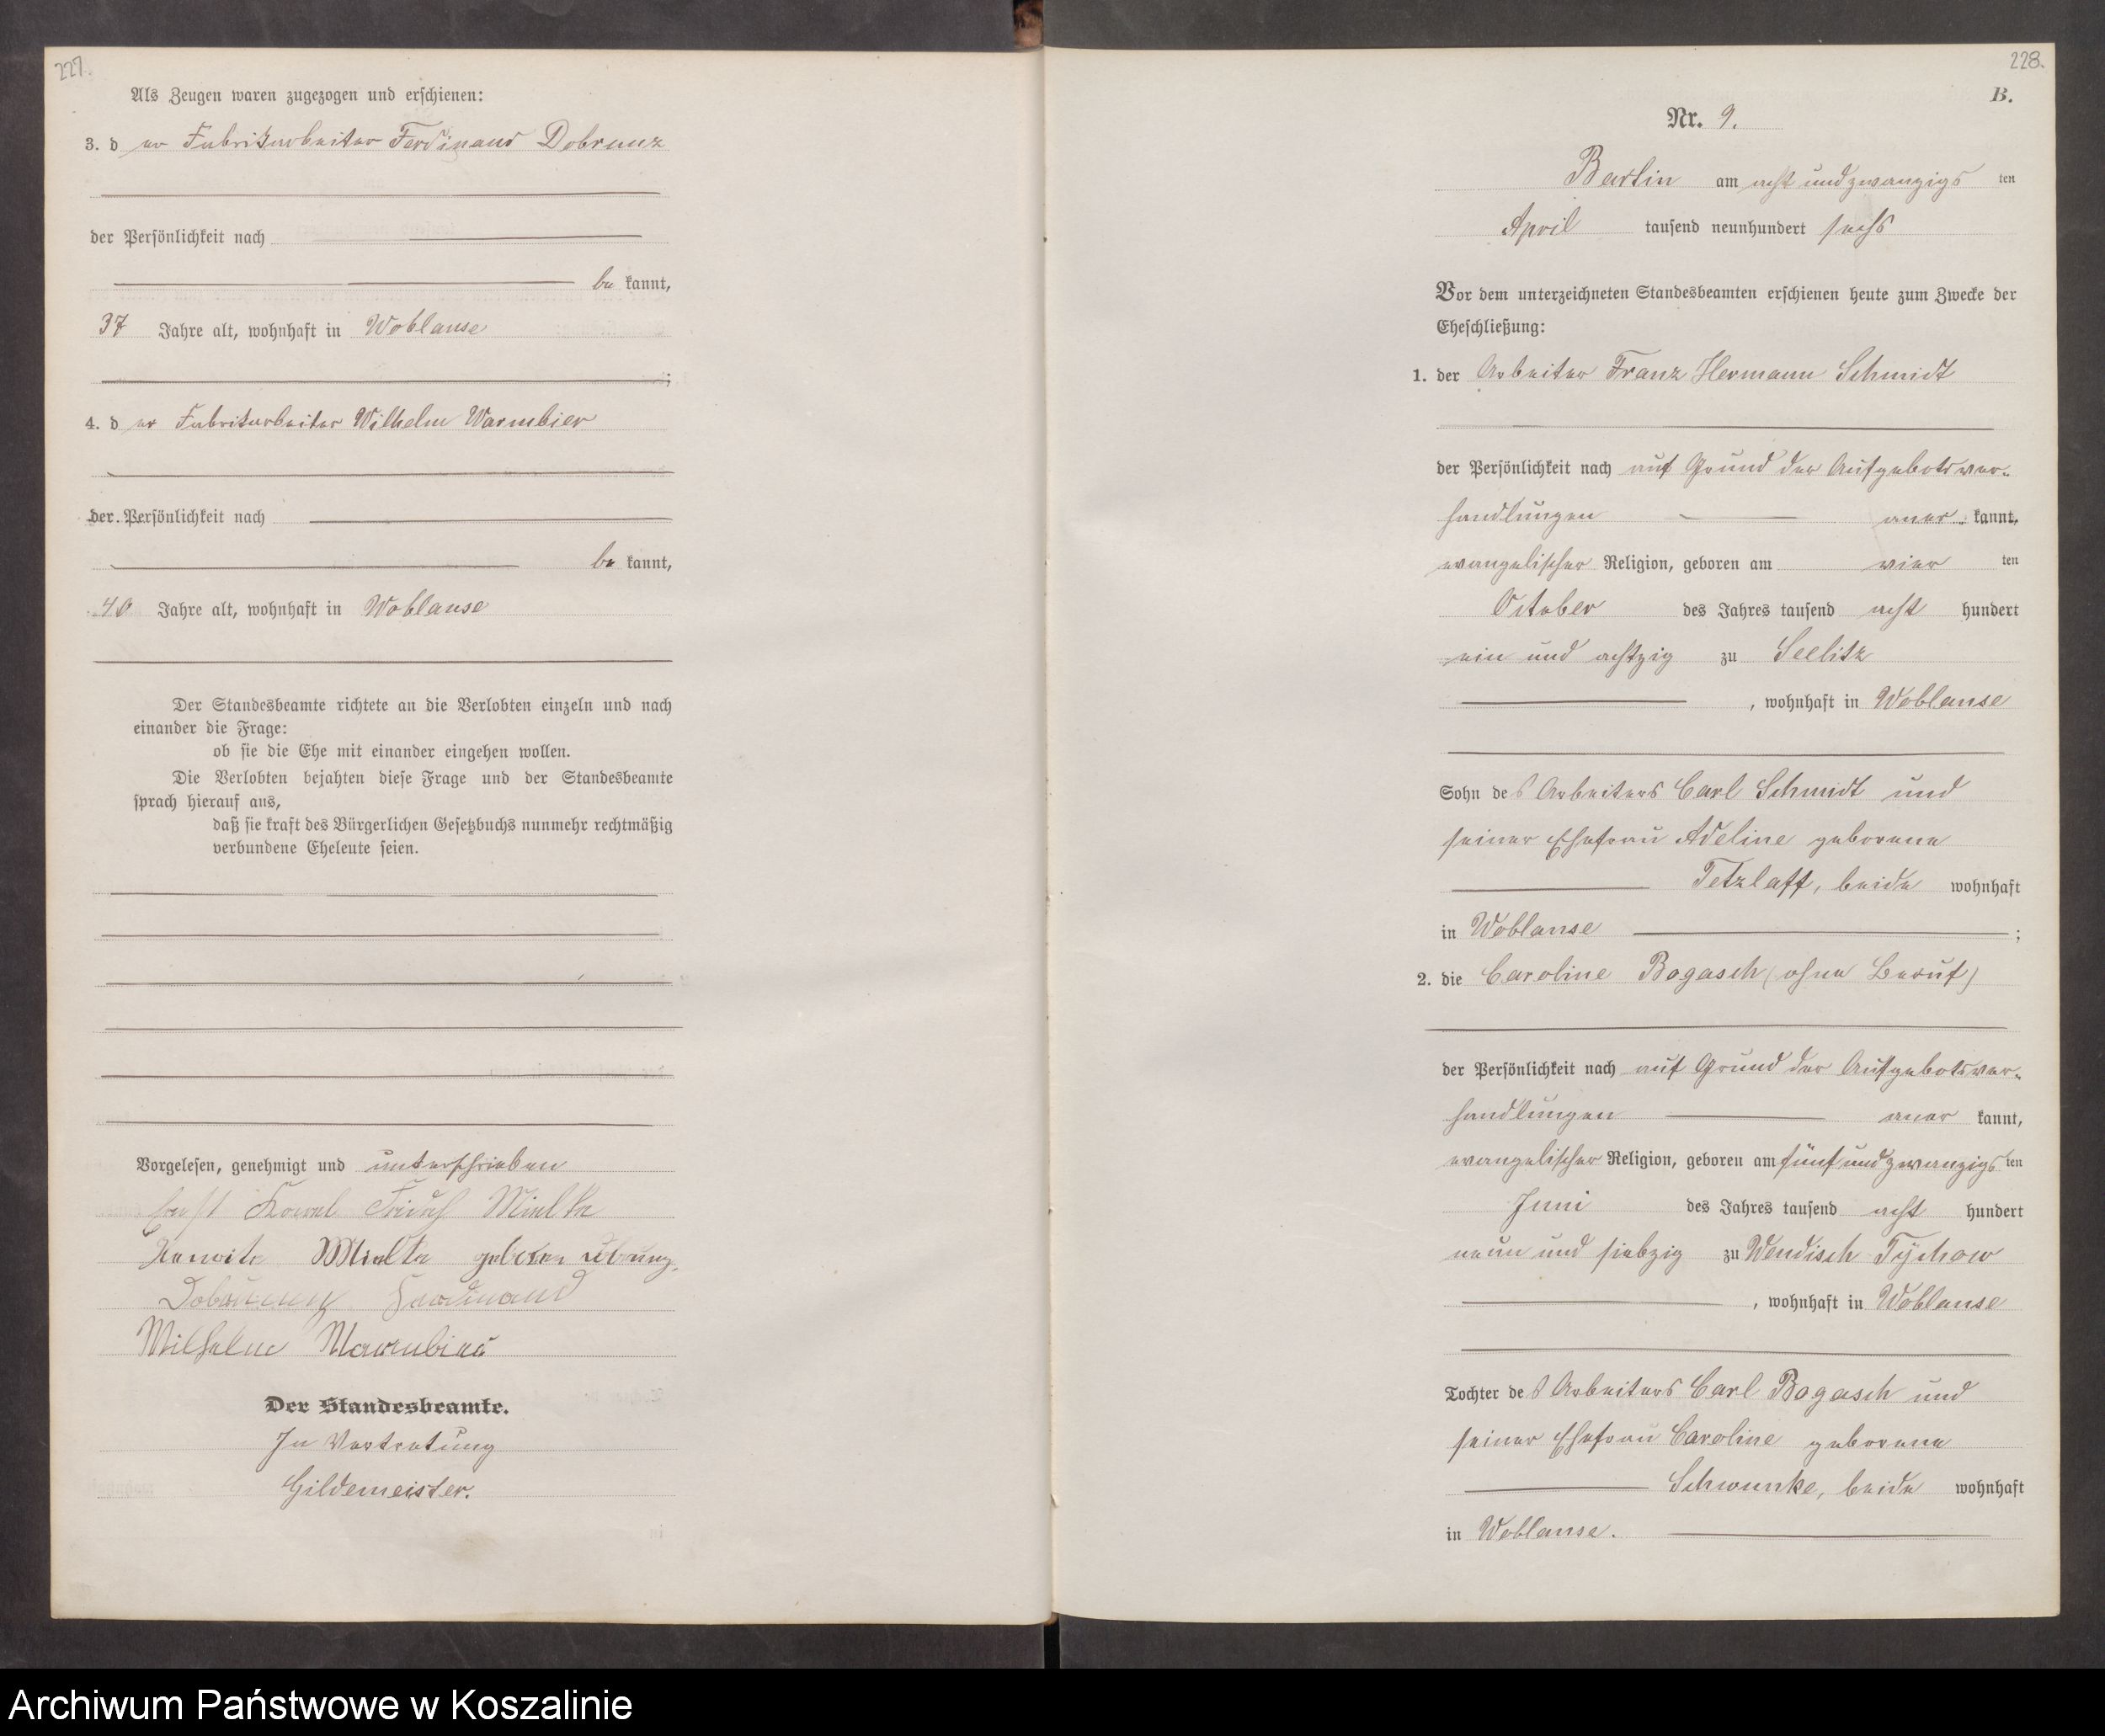 227.
Als Zeugen waren zugezogen und erschienen:
3. d er Fabrikarbeiter Ferdinand Dobrunz
der Persönlichkeit nach
be kannt,
37 Jahre alt, wohnhaft in Woblanse
;
4. d er Fabrikarbeiter Wilhelm Warmbier
der Persönlichkeit nach
be kannt,
40 Jahre alt, wohnhaft in Woblanse
Der Standesbeamte richtete an die Verlobten einzeln und nach
einander die Frage:
ob sie die Ehe mit einander eingehen wollen.
Die Verlobten bejahten diese Frage und der Standesbeamte
sprach hierauf aus,
daß sie kraft des Bürgerlichen Gesetzbuchs nunmehr rechtmäßig
verbundene Eheleute seien.
Vorgelesen, genehmigt und unterschrieben
Mielke
Mielke geboren
Dobrunz Ferdinand
Wilhelm Warmbier
Der Standesbeamte.
In Vertretung
Gildemeister.
228.
B.
Nr. 9.
Bartin am acht und zwanzigs ten
April tausend neunhundert sechs
Vor dem unterzeichneten Standesbeamten erschienen heute zum Zwecke der
Eheschließung:
1. der Arbeiter Franz Hermann Schmidt
der Persönlichkeit nach auf Grund der Aufgebotsver-
handlungen aner kannt,
evangelischer Religion, geboren am vier ten
October des Jahres tausend acht hundert
ein und achtzig zu Seelitz
, wohnhaft in Woblanse
Sohn des Arbeiters Carl Schmidt und
seiner Ehefrau Adeline geborene
Tetzlaff, beide wohnhaft
in Woblanse ;
2. die Caroline Bogasch (ohne Beruf)
der Persönlichkeit nach auf Grund der Aufgebotsver-
handlungen aner kannt,
evangelischer Religion, geboren am fünf und zwanzigs ten
Juni des Jahres tausend acht hundert
neun und siebzig zu Wendisch Tychow
, wohnhaft in Woblanse
Tochter des Arbeiters Carl Bogasch und
seiner Ehefrau Caroline geborene
Schwunke, beide wohnhaft
in Woblanse.
Archiwum Państwowe w Koszalinie